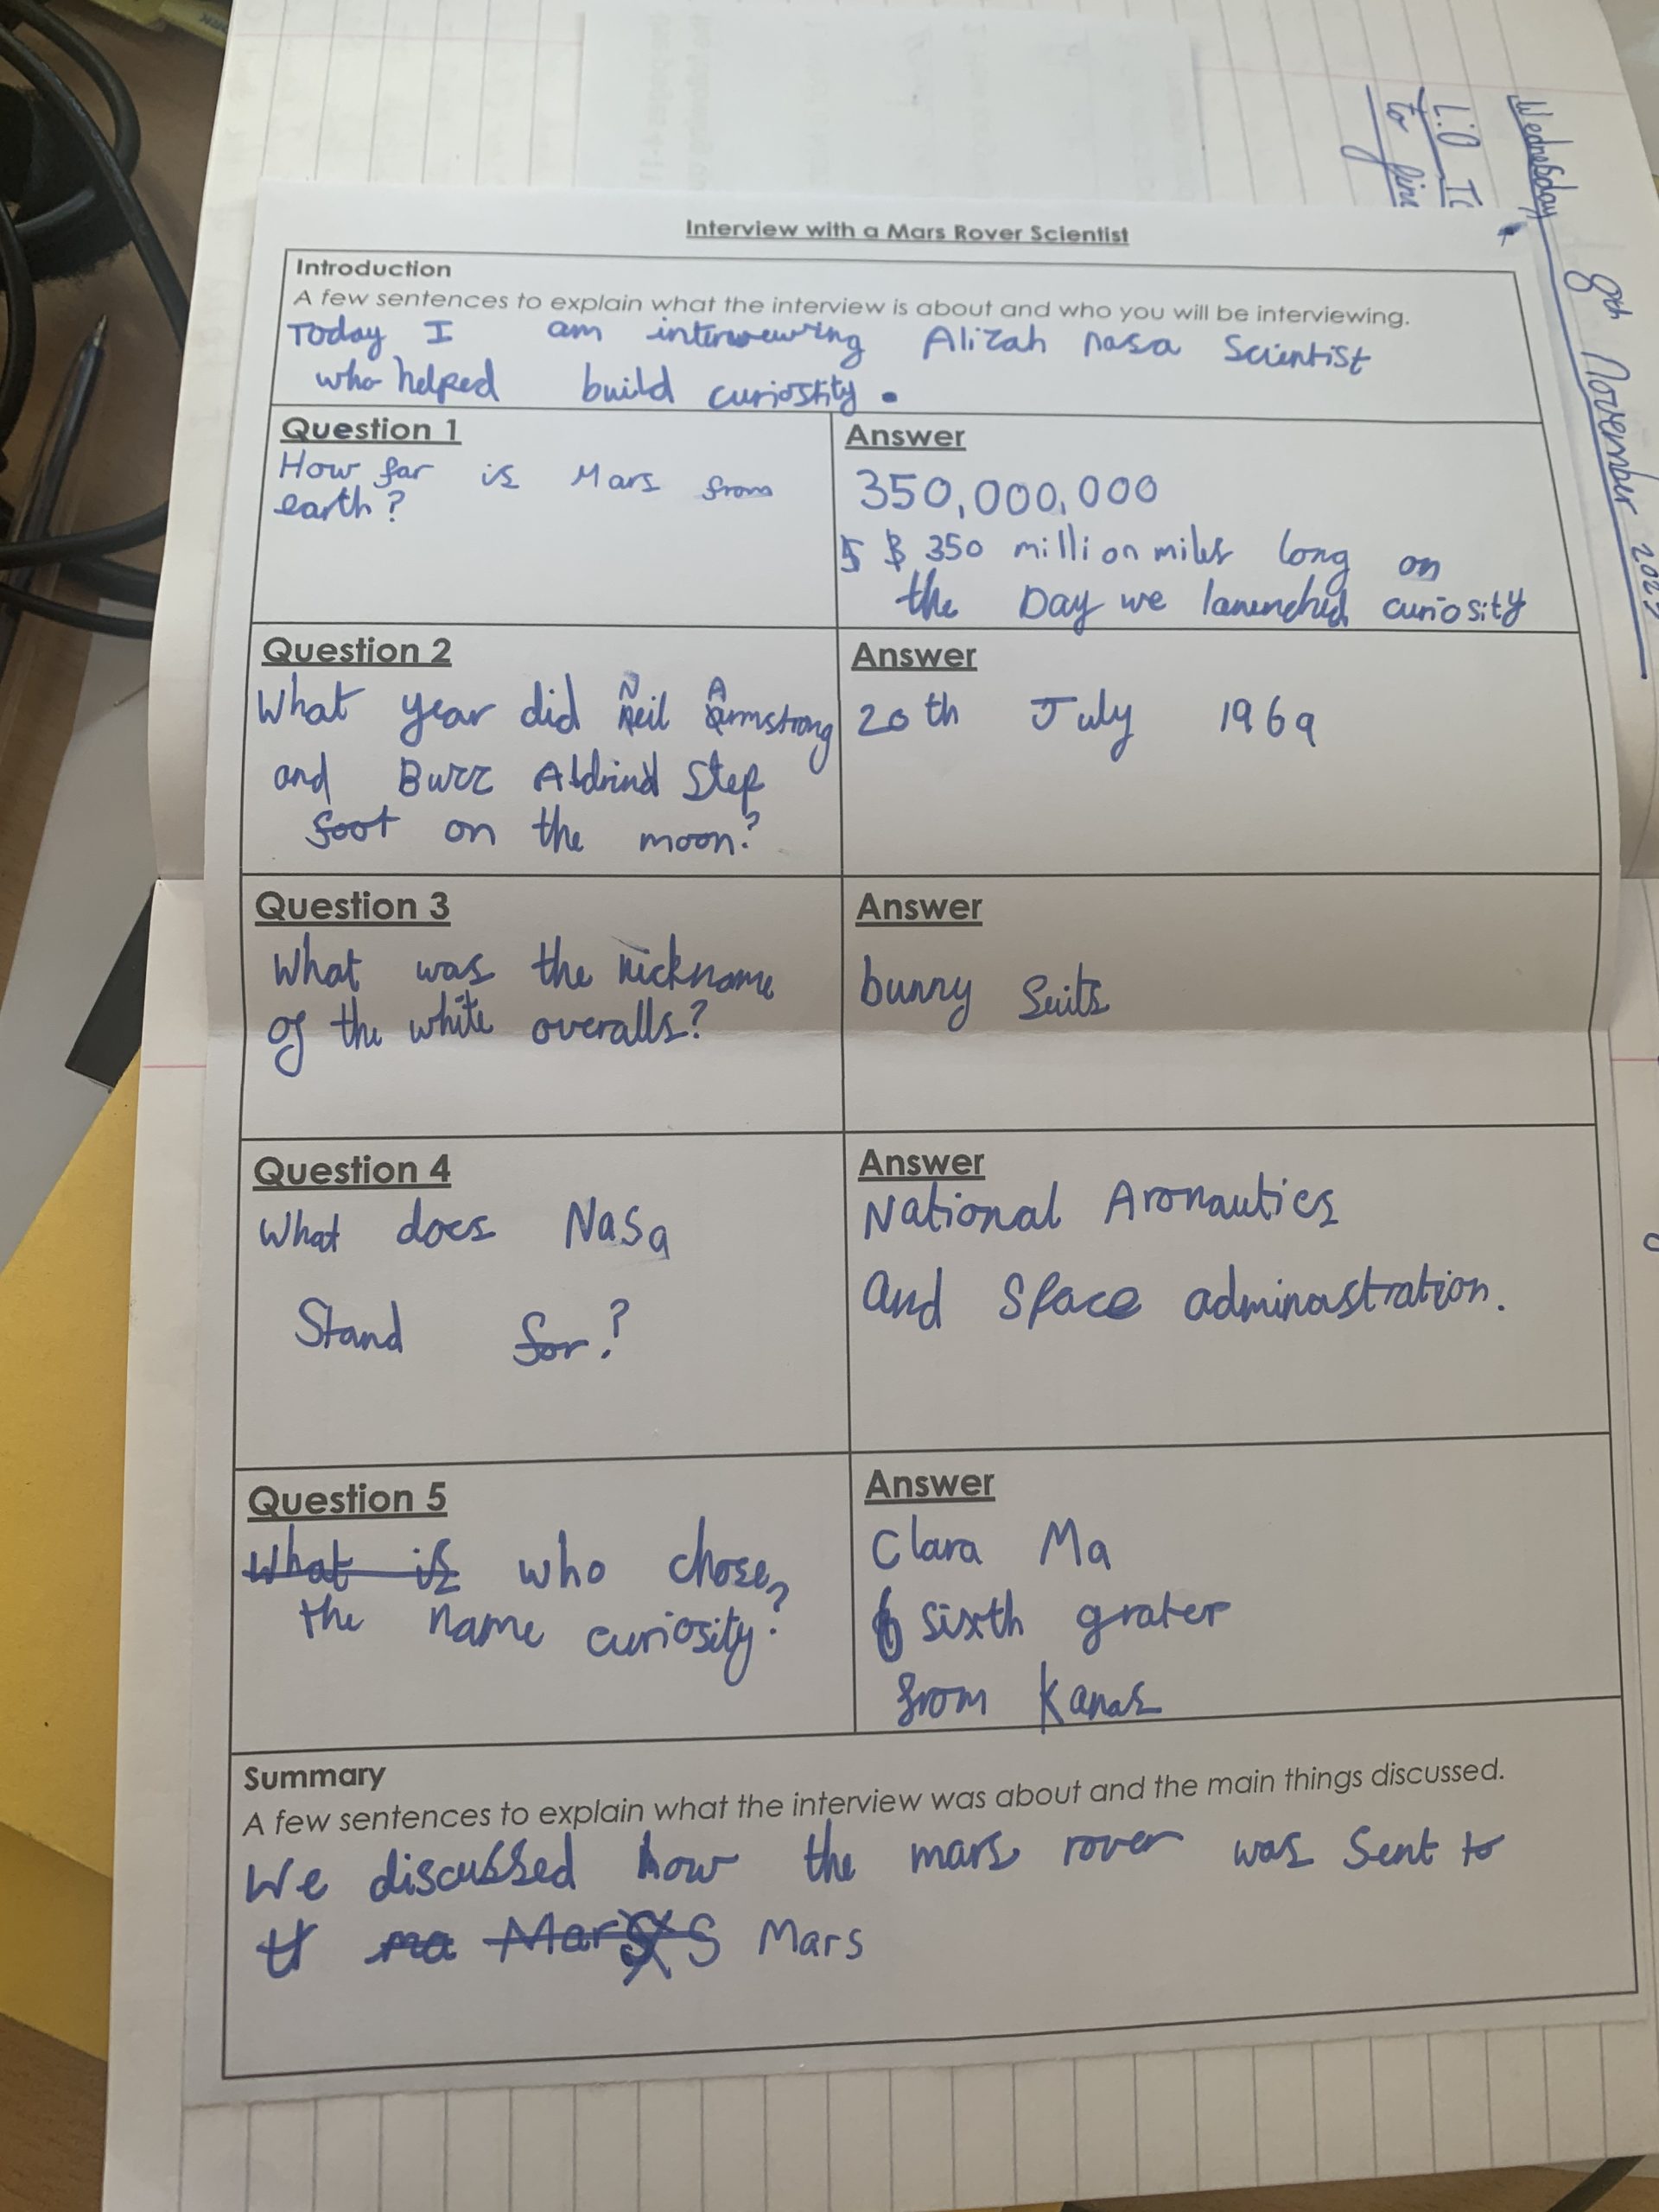 Wednesday 8th November
L.O To
to
Interview with a Mars Rover Scientist
Introduction
A few sentences to explain what the interview is about and who you will be interviewing.
Today I am interwewing Alizah nasa Scientist
who helped build curiostity.
Question 1
How far is Mars from
earth?
Answer
350,000,000
350 million miles long on
the Day we launched curiosity
Question 2
What year did Neil Armstrong
and Buzz Aldrind Step
foot on the moon?
Answer
20th July 1969
Question 3
What was the nickname
of the white overalls?
Answer
bunny Suits
Question 4
What does Nasa
Stand for?
Answer
National Aronautics
and Space adminastration.
Question 5
What is who chose
the name curiosity?
Answer
Clara Ma
6 sixth grater
from Kanas
Summary
A few sentences to explain what the interview was about and the main things discussed.
We discussed how the mars rover was Sent to
ma Mars S Mars